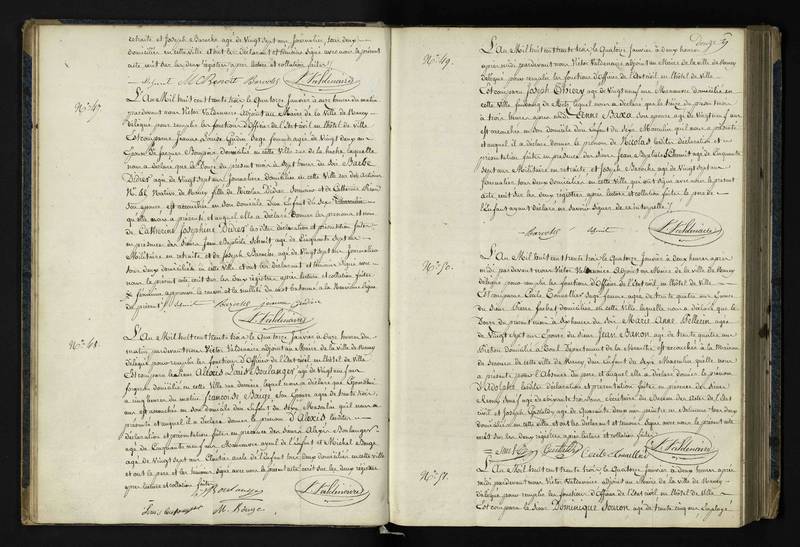 retraite et Joseph Baroche agé de Vingt Sept ans Journalier, tous deux
domiciliés en cette Ville et ont le déclarant et témoins signé avec nous le présent
acte écrit sur les deux registres après lecture et collation faites
M. Benoit Baroche V. Valdenaire
N.º 47.
L'An Mil huit cent trente trois le Quatorze Janvier à onze heures du matin
pardevant nous Victor Valdenaire adjoint au Maire de la Ville de Nancy
délégué pour remplir les fonctions d'Officier de l'Etat civil en l'hôtel de Ville
Est comparu Jeanne Louise Sage femme agée de Vingt deux ans
domicilié en cette Ville rue de la laquelle
nous a déclaré que le Douze du présent mois à Sept heures du Soir Barbe
Didier agée de Vingt Sept ans Journalière Domiciliée en cette Ville
Native de Nancy fille de Nicolas Didier et de Catherine
son épouse est accouchée en son domicile d'un Enfant du Sexe
qu'elle nous a présenté et auquel elle a déclaré donner les prénoms et nom
de Catherine Joséphine Didier lesdites déclaration et présentation faites
en présence des Sieurs Jean Baptiste Schmit agé de Cinquante Sept ans
Militaire en retraite et de Joseph Baroche agé de Vingt Sept ans Journalier
tous deux domiciliés en cette Ville et ont les déclarant et témoins Signé avec
nous le présent acte écrit sur les deux registres après lecture et collation faites
du présent
Schmit Baroche
V. Valdenaire
N.º 48.
L'An Mil huit cent trente trois le Quatorze Janvier à onze heures du
matin pardevant nous Victor Valdenaire adjoint au Maire de la Ville de Nancy
délégué pour remplir les fonctions d'Officier de l'Etat civil en l'hôtel de Ville
Est comparu le Sieur Alexis Louis Boulanger agé de Vingt
domicilié en cette Ville lequel nous a déclaré que
à cinq heures du matin Françoise Rouge Son Epouse agée de trente trois
ans est accouchée en son domicile d'un Enfant du Sexe Masculin qu'il nous a
présenté et auquel il a déclaré donner le prénom d'Alexis lesdites
déclaration et présentation faites en présence des Sieurs Alexis Boulanger
agé de Cinquante neuf ans ayeul de l'Enfant et Michel Rouge
agé de Vingt Sept ans oncle de l'Enfant tous deux domiciliés en cette Ville
et ont le père et les témoins Signé avec nous le présent acte écrit sur les deux registres
après lecture et collation faites
Boulanger V. Valdenaire
M. Rouge
Douze
N.º 49.
L'An Mil huit cent trente trois le Quatorze Janvier à deux heures
après midi pardevant nous Victor Valdenaire adjoint au Maire de la Ville de Nancy
délégué pour remplir les fonctions d'Officier de l'Etat civil en l'hôtel de Ville
Est comparu Joseph Thiéry agé de Vingt neuf ans Manoeuvre domicilié en
cette Ville faubourg de Metz lequel nous a déclaré que le treize du présent mois
à trois heures après midi Anne Baxa Son épouse agée de Vingt neuf ans
est accouchée en son domicile d'un Enfant du Sexe Masculin qu'il nous a présenté
et auquel il a déclaré donner le prénom de Nicolas lesdites déclaration et
présentation faites en présence des Sieurs Jean Baptiste Schmit agé de Cinquante
Sept ans Militaire en retraite et Joseph Baroche agé de Vingt Sept ans
Journalier tous deux domiciliés en cette Ville qui ont signé avec nous le présent
acte écrit sur les deux registres après lecture et collation faites le père de
l'Enfant ayant déclaré ne Savoir Signer de ce interpellé
Baroche Schmit V. Valdenaire
N.º 50.
L'An Mil huit cent trente trois le Quatorze Janvier à deux heures après
midi pardevant nous Victor Valdenaire adjoint au Maire de la Ville de Nancy
délégué pour remplir les fonctions d'Officier de l'Etat civil en l'hôtel de Ville
Est comparue Cécile Sage femme agée de trente quatre ans Epouse
du Sieur Pierre domiciliée en cette Ville laquelle nous a déclaré que le
Douze du présent mois à dix heures du Soir Marie Anne Pellerin agée
de Vingt Sept ans Epouse du Sieur Jean Banon agé de trente quatre ans
domicilié à Département de la Meurthe est accouchée à la Maison
de Secours de cette Ville de Nancy d'un Enfant du Sexe Masculin qu'elle nous
a présenté pour l'absence du père et auquel elle a déclaré donner le prénom
d'Adolphe lesdites déclaration et présentation faites en présence des Sieurs
Remy agé de Soixante trois ans Secrétaire du Bureau des Actes de l'Etat
civil et Joseph agé de Quarante deux ans peintre en tous deux
domiciliés en cette Ville et ont les déclarant et témoins Signé avec nous le présent
acte écrit sur les deux registres après lecture et collation faites
V. Valdenaire
N.º 51.
L'An Mil huit cent trente trois le Quatorze Janvier à deux heures après
midi pardevant nous Victor Valdenaire adjoint au Maire de la Ville de Nancy
délégué pour remplir les fonctions d'Officier de l'Etat civil en l'hôtel de Ville
Est comparu le Sieur Dominique agé de trente cinq ans Employé